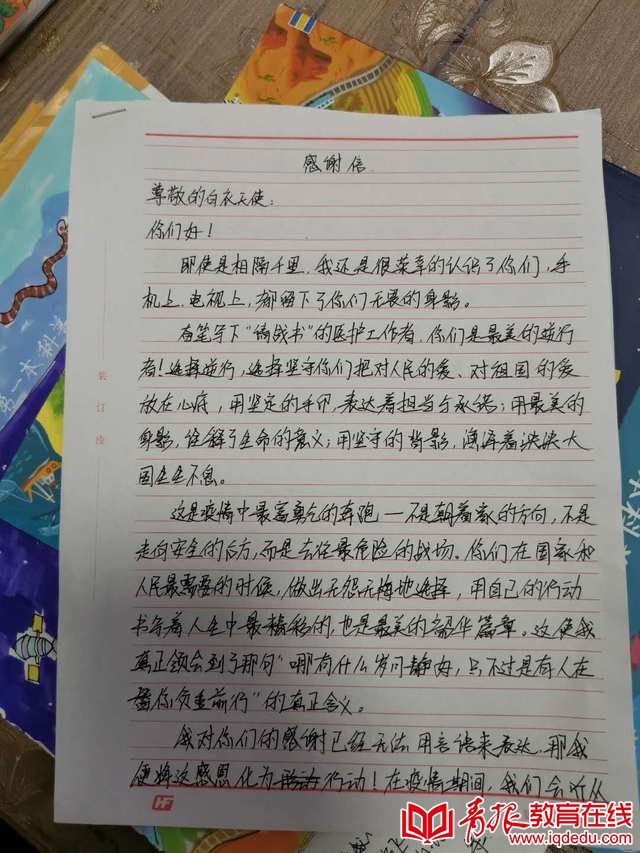 感谢信
尊敬的白衣天使:
你们好!
即使是相隔千里,我还是很荣幸的认识了你们,手
机上、电视上,都留下了你们无畏的身影。
奋笔写下“请战书”的医护工作者,你们是最美的逆行
者!选择逆行,选择坚守你们把对人民的爱、对祖国的爱
放在心底,用坚定的手印,表达着担当与承诺;用最美的
身影,诠释了生命的意义;用坚守的背影,演绎着泱泱大
国生生不息。
这是疫情中最富勇气的奔跑—不是朝着家的方向,不是
走向安全的后方,而是去往最危险的战场。你们在国家和
人民最需要的时候,做出无怨无悔地选择,用自己的行动
书写着人生中最精彩的,也是最美的韶华篇章。这使我
真正领会到了那句“哪有什么岁月静好,只不过是有人在
替你负重前行”的真正含义。
我对你们的感谢已经无法用言语来表达,那我
便将这感恩化为行动!在疫情期间,我们会听从
装
订
线
第一木
青报教育在线
www.iqdedu.com